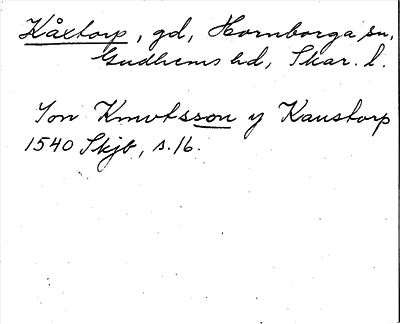 Kåxtorp, gd, Hornborga sn,
Gudhems hd, Skar. l.
Jon Knwtsson y Kaustorp
1540 Skjb, s. 16.